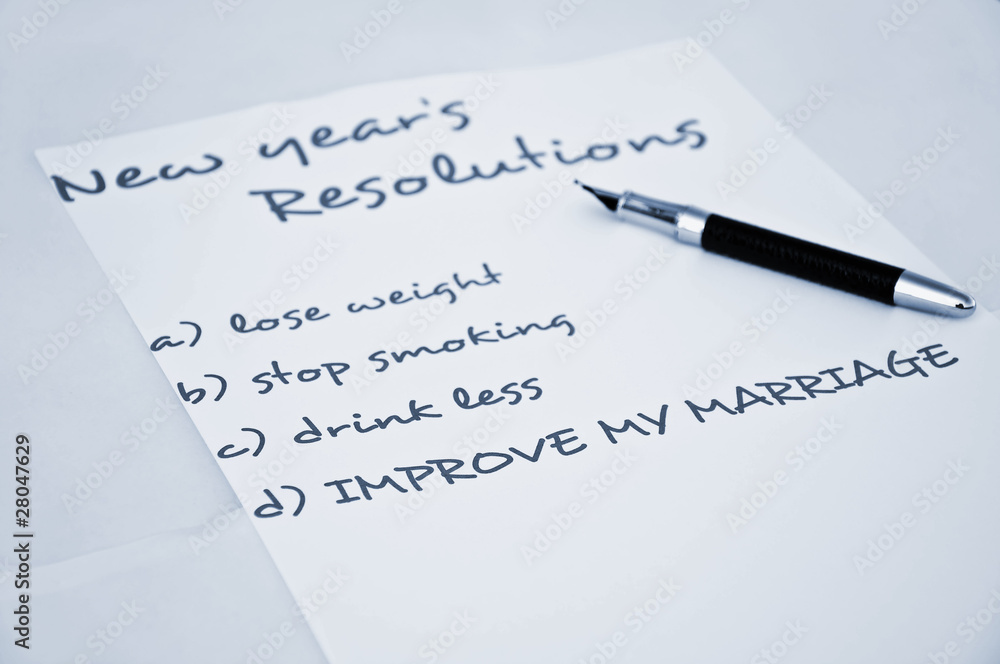 New year's
Resolutions
a) lose weight
b) stop smoking
c) drink less
d) IMPROVE MY MARRIAGE
Adobe Stock | #28047629